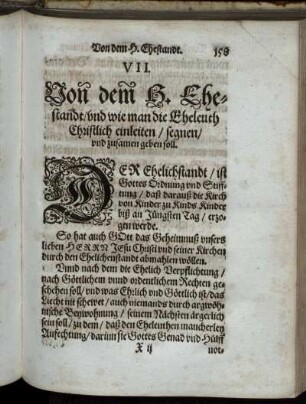 Von dem H. Ehestandt. 158
VII.
Von dem H. Ehe-
standt / vnd wie man die Eheleuth
Christlich einleiten / segnen /
vnd zusamen geben soll.
DER Ehelichstandt / ist
Gottes Ordnung vnd Stiff-
tung / daß darauß die Kirch
von Kinder zu Kinds Kinder
biß an Jüngsten Tag / erzo-
gen werde.
So hat auch Gott das Geheimnuß vnsers
lieben HERRN Jesu Christi vnd seiner Kirchen
durch den Ehelichenstandt abmahlen wöllen.
Vnnd nach dem die Ehelich Verpflichtung /
nach Göttlichem vnnd ordenlichem Rechten ge-
schehen soll / vnd was Ehrlich vnd Göttlich ist / das
Liecht nit schewet / auch niemands durch argwöh-
nische Beywohnung / seinem Nächsten ärgerlich
sein soll / zu dem / daß den Eheleuthen mancherley
Anfechtung / darum sie Gottes Genad vnd Hülff
X ij not-